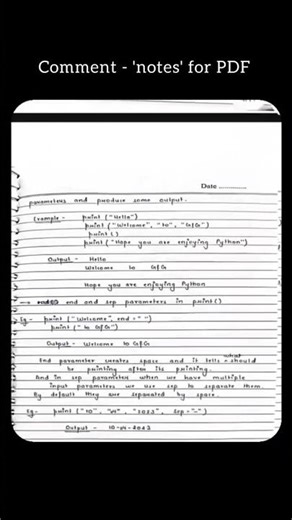 Comment - 'notes' for PDF
Date
parameters and produce some output.
Example - print ("Hello")
print ("Welcome", "to", "GfG")
print ()
print ("Hope you are enjoying Python")
Output - Hello
Welcome to GfG
Hope you are enjoying Python
→ end and sep parameters in print()
Eg - print ("Welcome", end = " ")
print (" to GfG")
Output - Welcome to GfG
End parameter creates space and it tells what should
be printing after its printing.
And in sep parameter when we have multiple
input parameters we use sep to separate them.
By default they are separated by space.
Eg - print ("10", "04", "2023", sep = "-")
Output - 10-04-2023